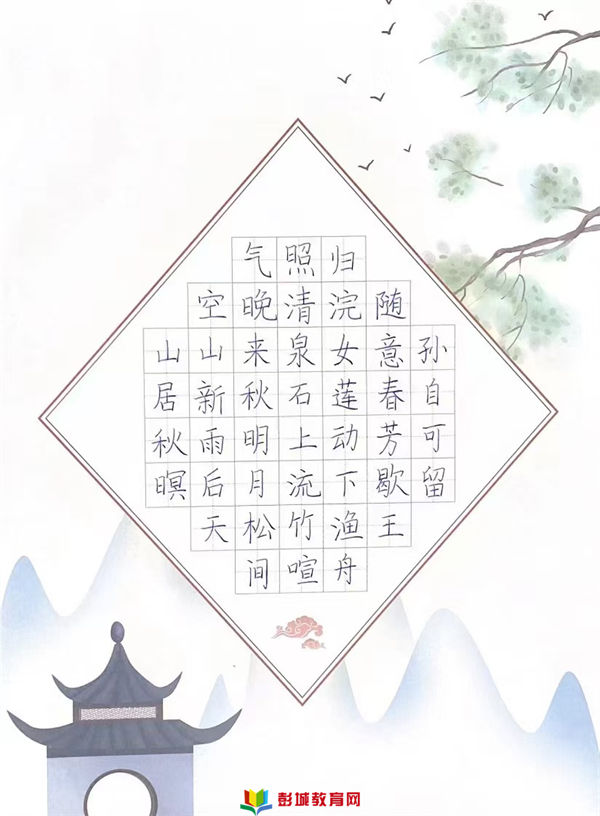 山居秋暝
空山新雨后天
气晚来秋明月松间
照清泉石上流竹喧
归浣女莲动下渔舟
随意春芳歇王
孙自可留
彭城教育网